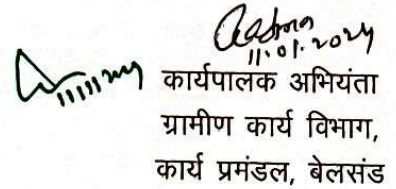 11.01.2024
कार्यपालक अभियंता
ग्रामीण कार्य विभाग,
कार्य प्रमंडल, बेलसंड